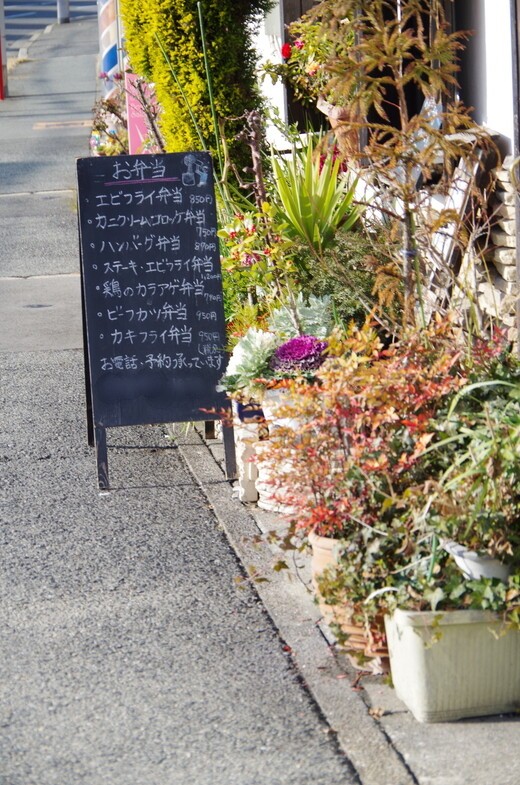 お弁当
・エビフライ弁当 850円
・カニクリームコロッケ弁当 750円
・ハンバーグ弁当 890円
・ステーキ・エビフライ弁当 1,200円
・鶏のカラアゲ弁当 790円
・ビーフカツ弁当 950円
・カキフライ弁当 950円
お電話・予約承っています